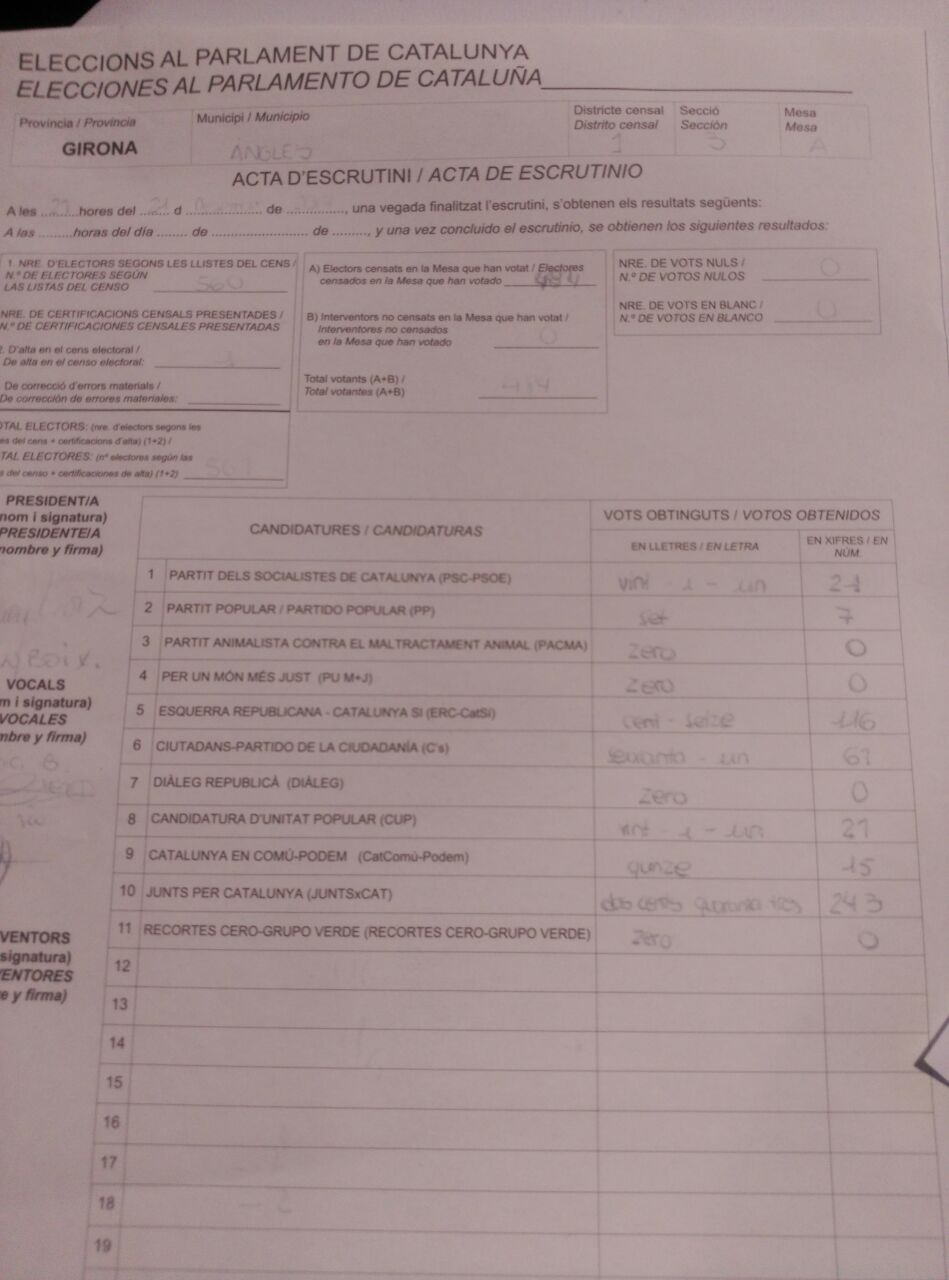 ELECCIONS AL PARLAMENT DE CATALUNYA
ELECCIONES AL PARLAMENTO DE CATALUÑA
Província / Provincia
Municipi / Municipio
Districte censal
Distrito censal
Secció
Sección
Mesa
Mesa
GIRONA
ANGLES
1
3
A
ACTA D'ESCRUTINI / ACTA DE ESCRUTINIO
A les ........ hores del ........ d ........ de ........, una vegada finalitzat l'escrutini, s'obtenen els resultats següents:
A las ........ horas del día ........ de ........ de ........, y una vez concluido el escrutinio, se obtienen los siguientes resultados:
1. NRE. D'ELECTORS SEGONS LES LLISTES DEL CENS /
N.º DE ELECTORES SEGÚN
LAS LISTAS DEL CENSO 560
NRE. DE CERTIFICACIONS CENSALS PRESENTADES /
N.º DE CERTIFICACIONES CENSALES PRESENTADAS
2. D'alta en el cens electoral /
De alta en el censo electoral: 1
De correcció d'errors materials /
De corrección de errores materiales:
OTAL ELECTORS: (nre. d'electors segons les
es del cens + certificacions d'alta) (1+2) /
TAL ELECTORES: (nº electores según las
s del censo + certificaciones de alta) (1+2) 561
A) Electors censats en la Mesa que han votat / Electores
censados en la Mesa que han votado 484
B) Interventors no censats en la Mesa que han votat /
Interventores no censados
en la Mesa que han votado 0
Total votants (A+B) /
Total votantes (A+B)
NRE. DE VOTS NULS /
N.º DE VOTOS NULOS 0
NRE. DE VOTS EN BLANC /
N.º DE VOTOS EN BLANCO 0
PRESIDENT/A
nom i signatura)
PRESIDENTE/A
nombre y firma)
VOCALS
m i signatura)
VOCALES
mbre y firma)
VENTORS
signatura)
VENTORES
e y firma)
CANDIDATURES / CANDIDATURAS
VOTS OBTINGUTS / VOTOS OBTENIDOS
EN LLETRES / EN LETRA
EN XIFRES / EN NÚM.
1 PARTIT DELS SOCIALISTES DE CATALUNYA (PSC-PSOE) vint-i-un 21
2 PARTIT POPULAR / PARTIDO POPULAR (PP) set 7
3 PARTIT ANIMALISTA CONTRA EL MALTRACTAMENT ANIMAL (PACMA) zero 0
4 PER UN MÓN MÉS JUST (PU M+J) zero 0
5 ESQUERRA REPUBLICANA - CATALUNYA SÍ (ERC-CatSí) cent-seize 116
6 CIUTADANS-PARTIDO DE LA CIUDADANÍA (C's) seixanta-un 61
7 DIÀLEG REPUBLICÀ (DIÀLEG) zero 0
8 CANDIDATURA D'UNITAT POPULAR (CUP) vint-i-un 21
9 CATALUNYA EN COMÚ-PODEM (CatComú-Podem) quinze 15
10 JUNTS PER CATALUNYA (JUNTSxCAT) dos cents quaranta tres 243
11 RECORTES CERO-GRUPO VERDE (RECORTES CERO-GRUPO VERDE) zero 0
12
13
14
15
16
17
18
19